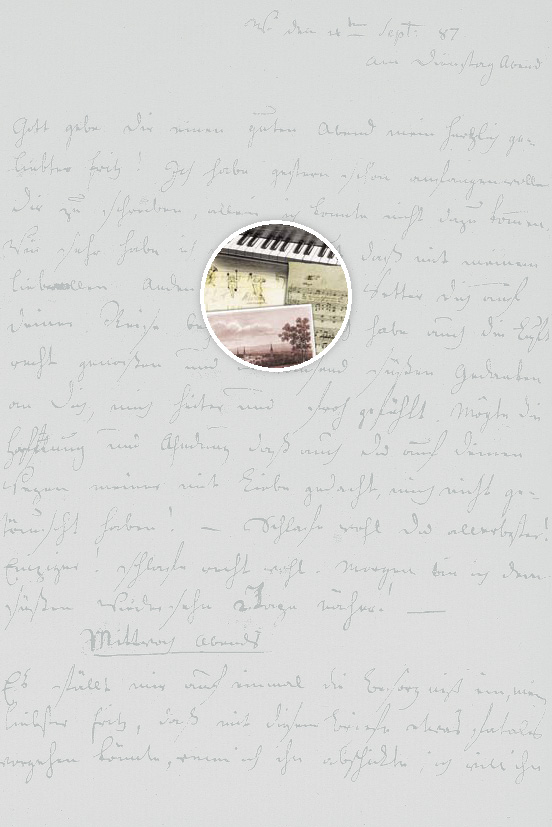 den 18ten Sept: 87
am Dienstag Abend
Gott gebe dir einen guten Abend mein herzlich ge-
liebter Fritz! Ich habe gestern schon anfangen wollen
dir zu schreiben, allein konnte nicht dazu kommen
sehr habe daß mit meinem
liebevollen Wetter dich auf
deiner Reise habe auch die Luft
recht genossen und süßen Gedanken
an dich, mich heiter und froh gefühlt. Möge die
Hoffnung und Ahndung daß auch du auf deinen
Wegen meiner mit Liebe gedacht, mich nicht ge-
täuscht haben! — Schlafe wohl du allerbester!
Einziger! schlafe recht wohl. Morgen bin ich dem
süßen Wiedersehn 2 Tage näher! —
Mittwoch Abends
Es fällt mir auf einmal die Besorgniß ein, mein
liebster Fritz, daß mit diesem Briefe etwas fatales
vorgehen könnte, wenn ich ihn abschickte, ich will ihn